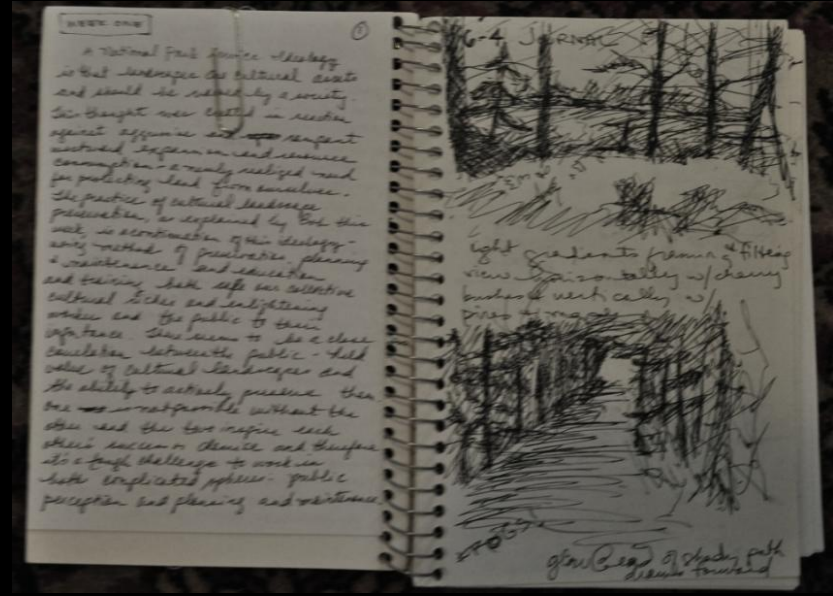 WEEK ONE
1
A National Park Service ideology
is that landscapes are cultural assets
and should be valued by a society.
This thought was in reaction
against aggressive and rampant
westward expansion and resource
consumption - a newly realized need
for protecting land from ourselves.
The practice of cultural landscape
preservation, as explained by Bob this
week, is a continuation of this ideology -
using methods of preservation planning
& maintenance and education
and training both safe our collective
cultural riches and enlightening
worker and the public to their
importance. There seems to be a close
correlation between the public-held
value of cultural landscapes and
the ability to actively preserve them
one is not possible without the
other and the two inspire each
other's success or demise and therefore
it's a tough challenge to work in
both complicated spheres - public
perception and planning and maintenance
6-4 JURNAL
light gradients framing & filtering
view horizontally w/ cherry
bushes & vertically w
pines
glow @ end of shady path
draws forward